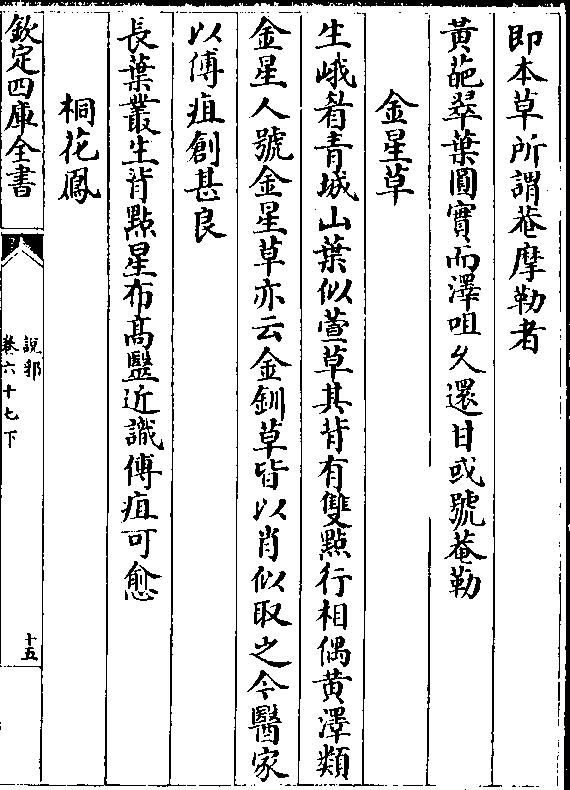 即本草所謂菴摩勒者
黃葩翠葉圓實而澤咀乆還甘或號菴勒
金星草
生峨𥇒青城山葉似萱草其背有雙㸃行相偶黃澤類
金星人號金星草亦云金釧草皆以肖似取之今醫家
以傅疽創甚良
長葉叢生背㸃星布髙毉近識傅疽可愈
桐花鳳
欽定四庫全書
說郛
卷六十七下
十五